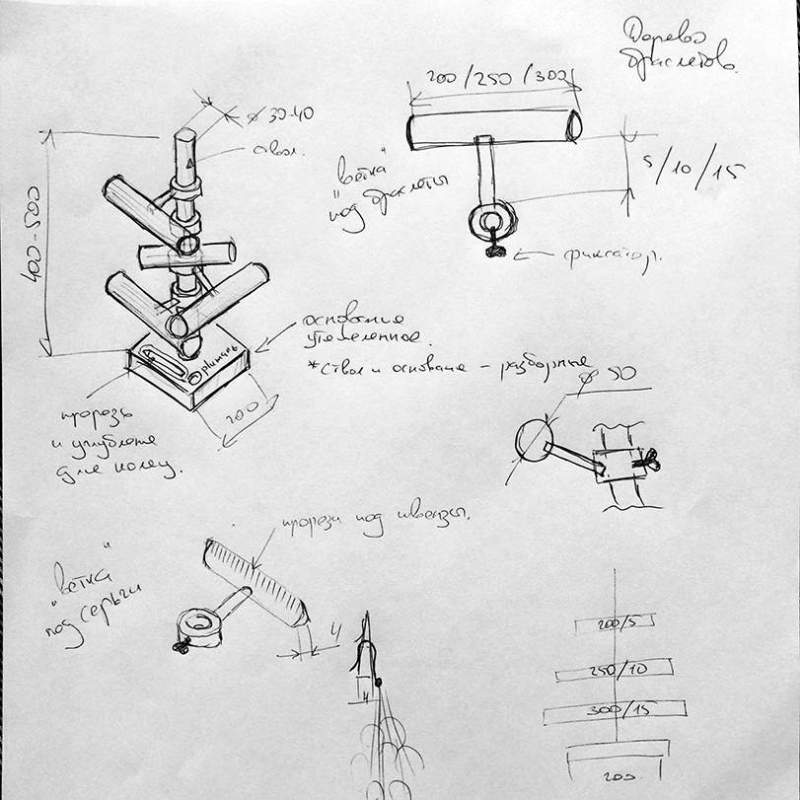 Дерево
браслетов.
200/250/300
ø 30-40
ствол.
"ветка"
под браслеты
5/10/15
400-500
фиксатор.
основание
утяжеленное.
*Ствол и основание - разборные
200
ø 50
прорезь
и углубление
для колец.
прорези под швензы.
"ветка"
под серьги
4
4
200/5
250/10
300/15
200